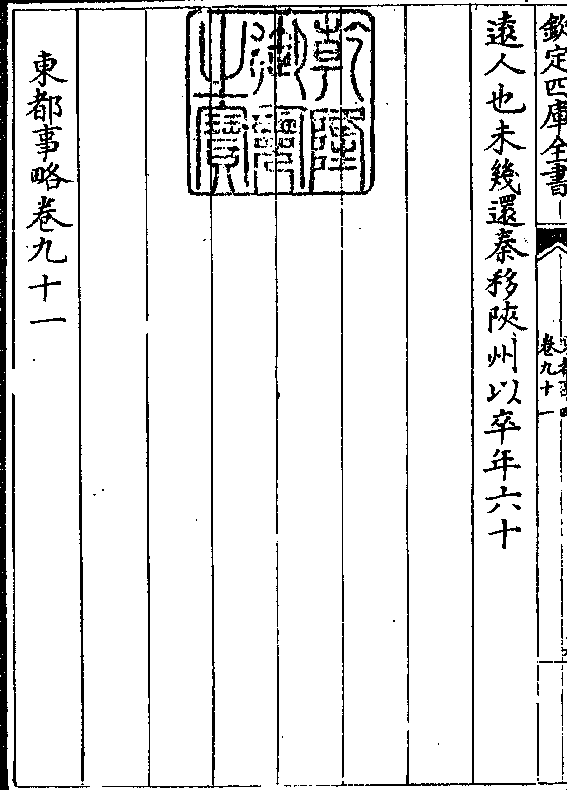 欽定四庫全書
東都事略
卷九十一
遠人也未幾還秦移陝州以卒年六十
乾隆御覽之寶
東都事略卷九十一